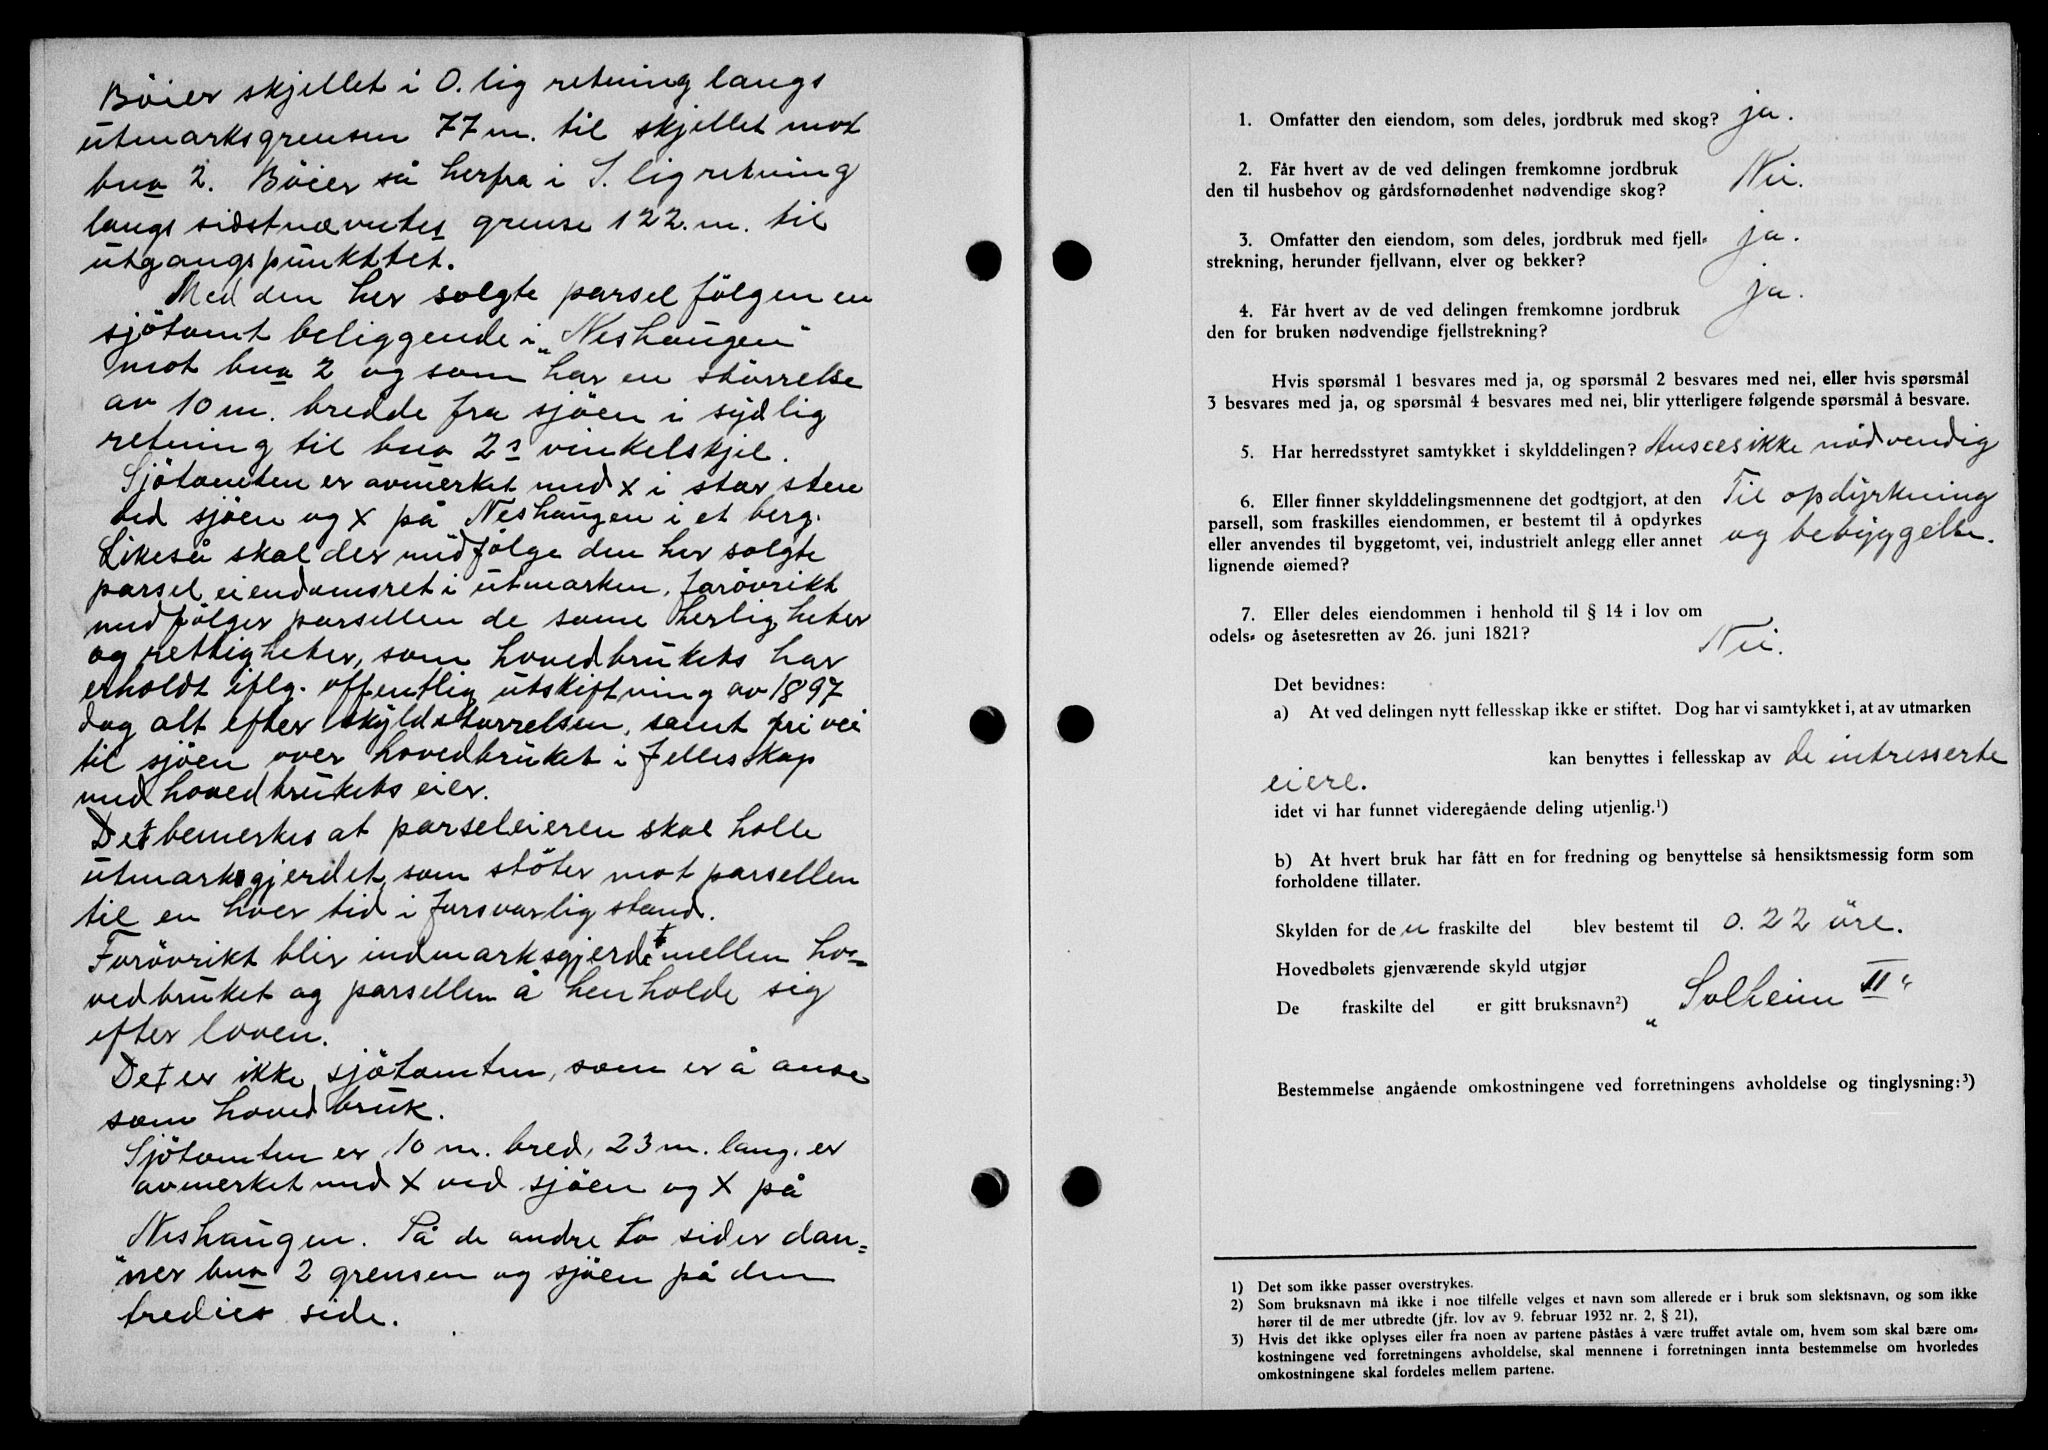 Böier skjellet i O. lig retning langs
utmarksgrensen 77 m. til skjellet mot
bno 2. Böier så herfra i S. lig retning
langs sidstnævntes grense 122. m. til
utgangspunkttet.
Med den her solgte parsel fölgen en
sjötomt beliggende i „Neshaugen"
mot bno 2 og som har en störrelse
av 10 m. bredde fra sjöen i sydlig
retning til bno 2s vinkelskjel.
Sjötomten er avmerket med x i stor sten
ved sjöen og x på Neshaugen i et berg.
Likeså skal der midfölge den her solgte
parsel eiendomsret i utmarken. Forövrikt
medfölger parsellen de same herligheter
og rettigheter, som hovedbrukets har
erholdt iflg. offentlig utskiftning av 1897
dog alt efter skyldstörrelsen, samt fri vei
til sjöen over hovedbruket i fellesskap
med hovedbrukets eier.
Det bemerkes at parseleieren skal holle
utmarksgjerdet, som stöter mot parsellen
til en hver tid i forsvarlig stand.
Forövrikt blir indmarksgjerdet mellen ho=
vedbruket og parsellen å henholde sig
efter loven.
Det er ikke sjötomten, som er å anse
som hovedbruk.
Sjötomten er 10 m. bred, 23 m. lang. er
avmerket med x ved sjöen og x på
„Neshaugen. På de andre to sider dan=
ner bno 2 grensen og sjöen på den
tredies side.
1. Omfatter den eiendom, som deles, jordbruk med skog? ja.
2. Får hvert av de ved delingen fremkomne jordbruk
den til husbehov og gårdsfornødenhet nødvendige skog? Nei.
3. Omfatter den eiendom, som deles, jordbruk med fjell=
strekning, herunder fjellvann, elver og bekker? ja.
4. Får hvert av de ved delingen fremkomne jordbruk
den for bruken nødvendige fjellstrekning? ja.
Hvis spørsmål 1 besvares med ja, og spørsmål 2 besvares med nei, eller hvis spørsmål
3 besvares med ja, og spørsmål 4 besvares med nei, blir ytterligere følgende spørsmål å besvare.
5. Har herredsstyret samtykket i skylddelingen? Ansees ikke nödvendig
6. Eller finner skylddelingsmennene det godtgjort, at den
parsell, som fraskilles eiendommen, er bestemt til å opdyrkes
eller anvendes til byggetomt, vei, industrielt anlegg eller annet
lignende øiemed?
Til opdyrkning
og bebyggelse.
7. Eller deles eiendommen i henhold til § 14 i lov om
odels= og åsetesretten av 26. juni 1821? Nei.
Det bevidnes:
a) At ved delingen nytt fellesskap ikke er stiftet. Dog har vi samtykket i, at av utmarken
kan benyttes i fellesskap av de intresserte
eiere.
idet vi har funnet videregående deling utjenlig.¹)
b) At hvert bruk har fått en for fredning og benyttelse så hensiktsmessig form som
forholdene tillater.
Skylden for den fraskilte del blev bestemt til 0.22 öre.
Hovedbølets gjenværende skyld utgjør
De fraskilte del er gitt bruksnavn²) „Solheim II"
Bestemmelse angående omkostningene ved forretningens avholdelse og tinglysning:³)
1) Det som ikke passer overstrykes.
2) Som bruksnavn må ikke i noe tilfelle velges et navn som allerede er i bruk som slektsnavn, og som ikke
hører til de mer utbredte (jfr. lov av 9. februar 1932 nr. 2, § 21),
3) Hvis det ikke oplyses eller fra noen av partene påståes å være truffet avtale om, hvem som skal bære om=
kostningene ved forretningens avholdelse, skal mennene i forretningen innta bestemmelse om hvorledes
omkostningene skal fordeles mellem partene.